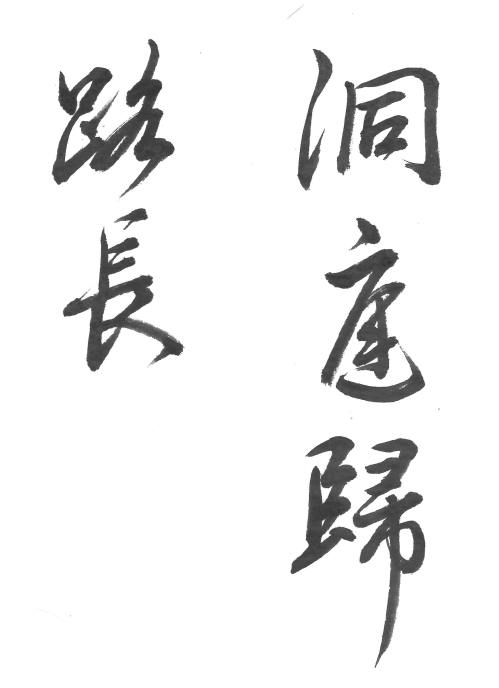 洞庭歸
路長